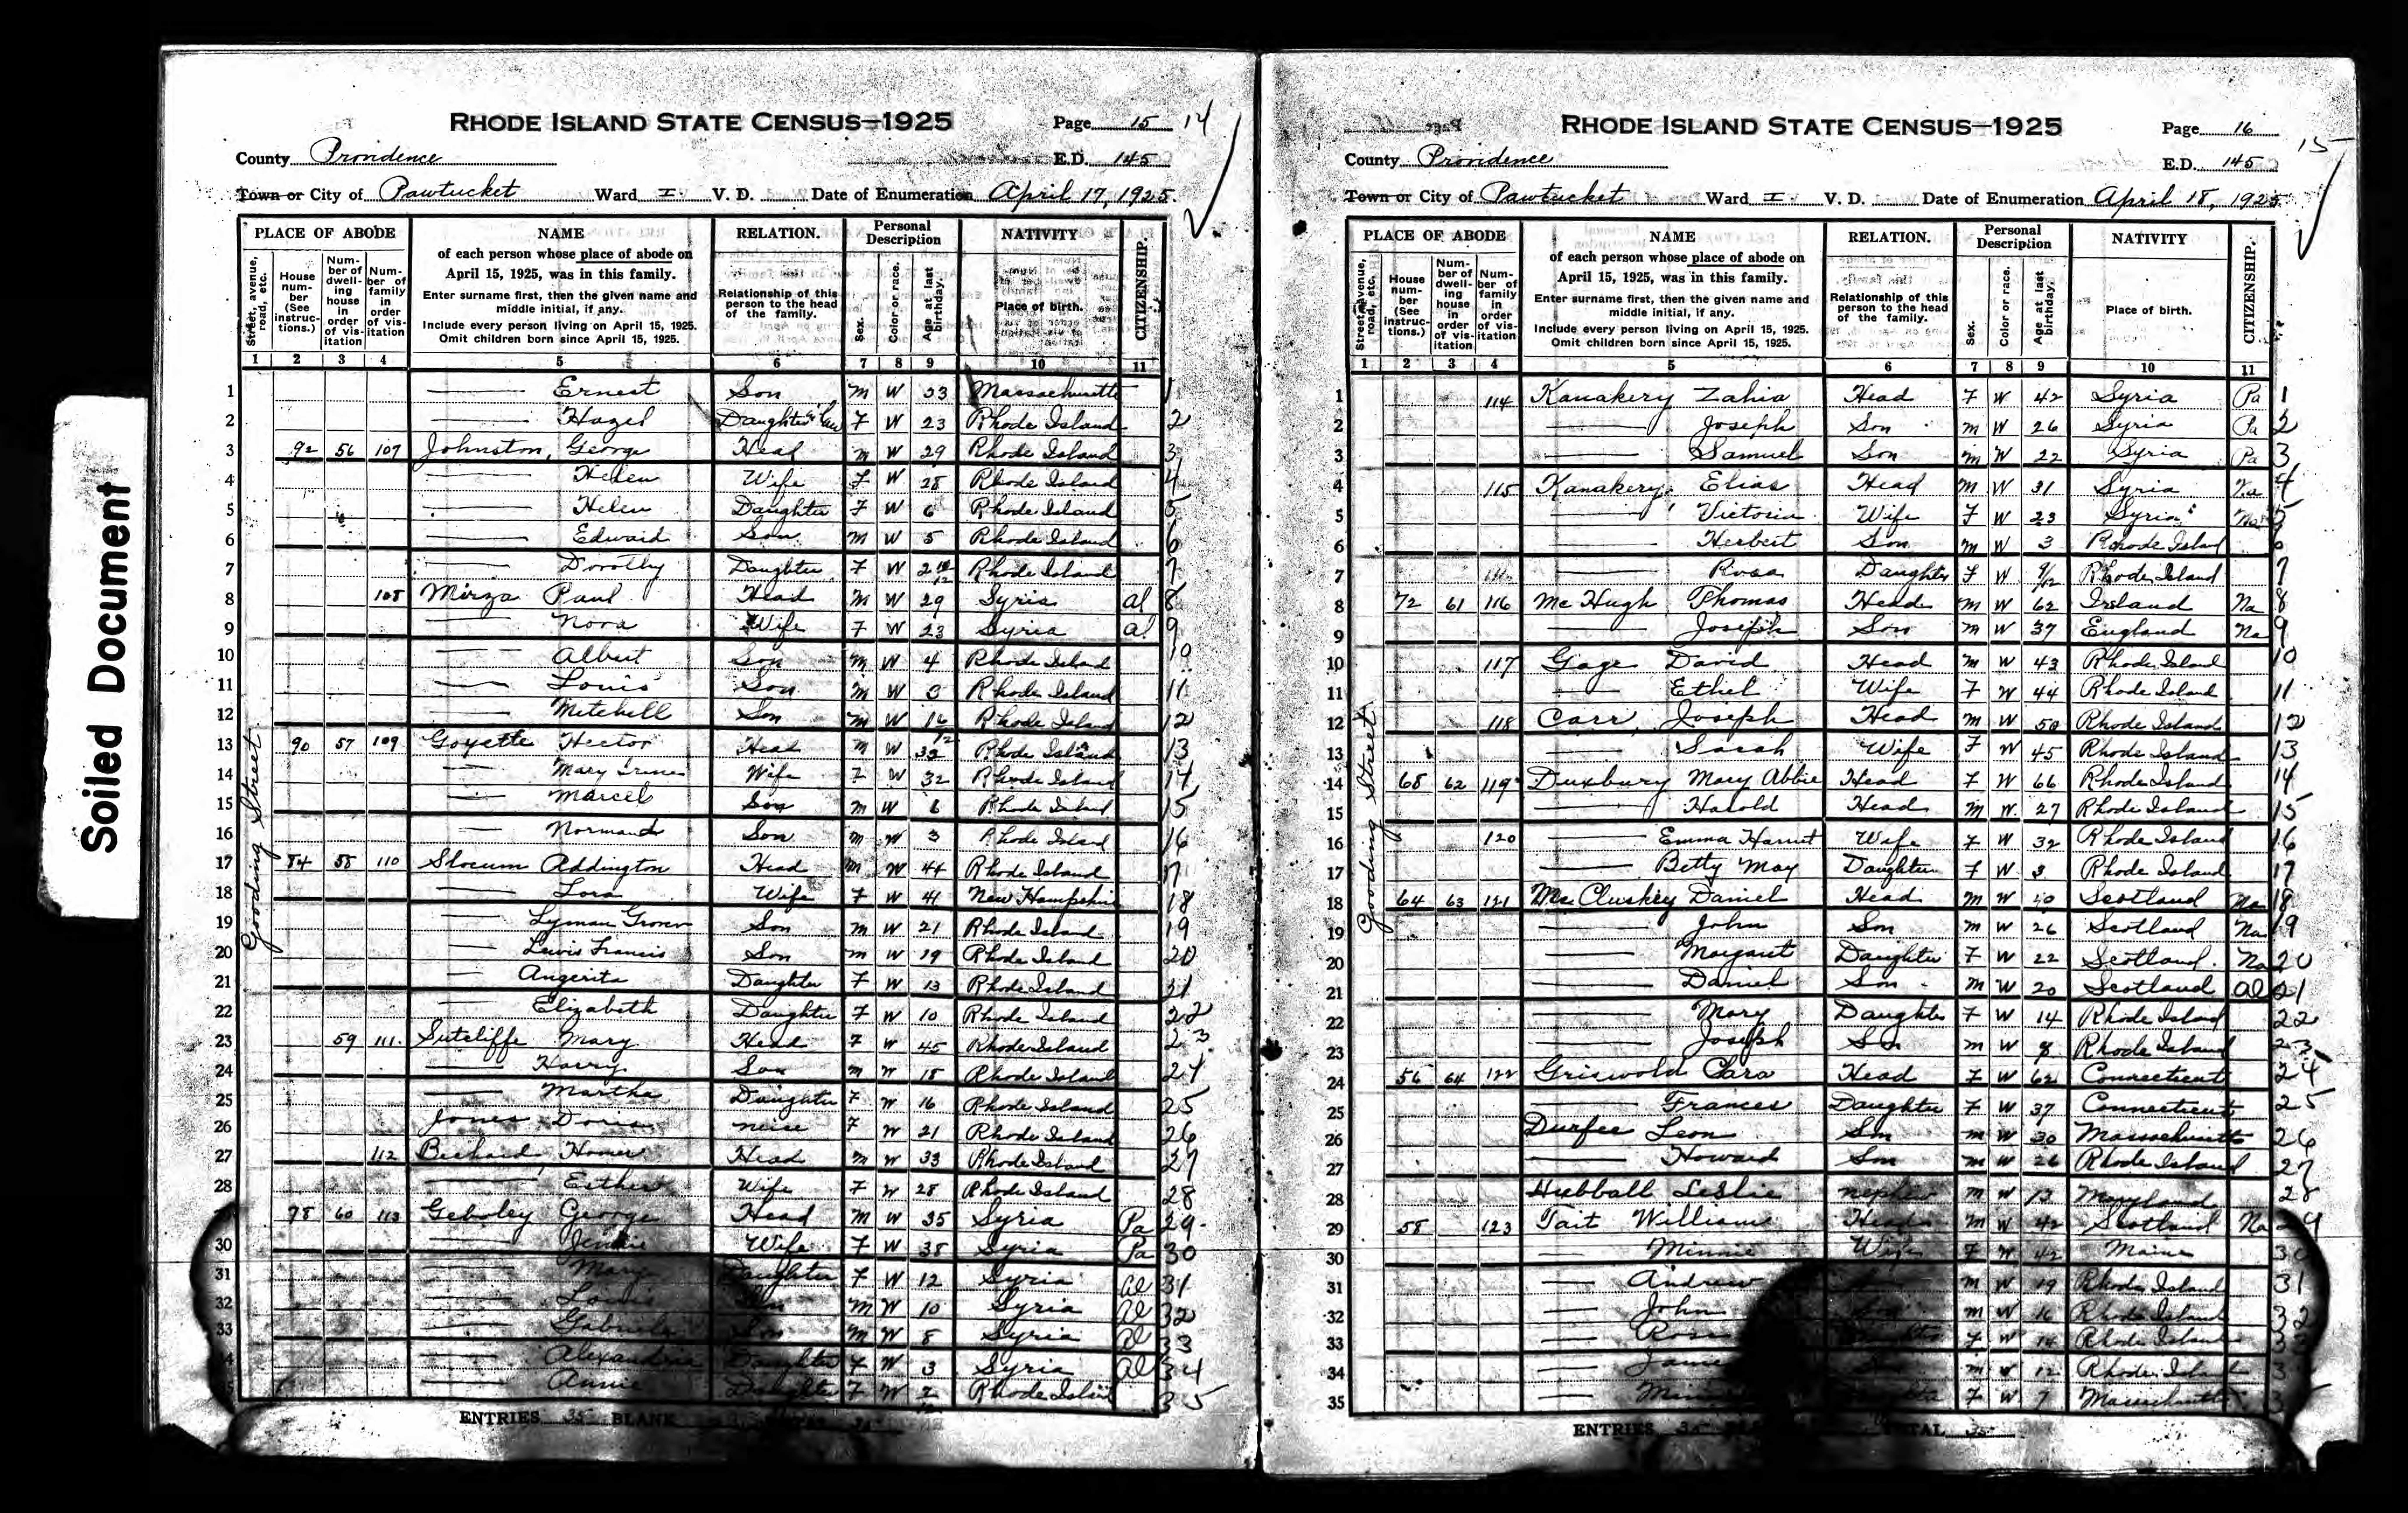 Soiled Document
RHODE ISLAND STATE CENSUS—1925
Page 15 14
County Providence
E.D. 145
Town or City of Pawtucket Ward I V. D. Date of Enumeration April 17, 1925.
PLACE OF ABODE
Street, avenue, road, etc.
House number (See instructions.)
Number of dwelling house in order of visitation
Number of family in order of visitation
NAME
of each person whose place of abode on
April 15, 1925, was in this family.
Enter surname first, then the given name and
middle initial, if any.
Include every person living on April 15, 1925.
Omit children born since April 15, 1925.
RELATION.
Relationship of this
person to the head
of the family.
Personal
Description
Sex.
Color or race.
Age at last birthday.
NATIVITY
Place of birth.
CITIZENSHIP.
1 2 3 4 5 6 7 8 9 10 11
Gooding Street
1 — Ernest Son M W 33 Massachusetts 1
2 — Hazel Daughter in law F W 23 Rhode Island 2
3 92 56 107 Johnston, George Head M W 29 Rhode Island 3
4 — Helen Wife F W 28 Rhode Island 4
5 — Helen Daughter F W 6 Rhode Island 5
6 — Edward Son M W 5 Rhode Island 6
7 — Dorothy Daughter F W 2 Rhode Island 7
8 108 Mirza Paul Head M W 29 Syria al 8
9 — Nora Wife F W 23 Syria al 9
10 — Albert Son M W 4 Rhode Island 10
11 — Louis Son M W 3 Rhode Island 11
12 — Mitchell Son M W Rhode Island 12
13 90 57 109 Goyette Hector Head M W 33 Rhode Island 13
14 — Mary Irene Wife F W 32 Rhode Island 14
15 — Marcel Son M W 6 Rhode Island 15
16 — Normand Son M W 3 Rhode Island 16
17 84 58 110 Slocum Addington Head M W 44 Rhode Island 17
18 — Lora Wife F W 41 New Hampshire 18
19 — Lyman Grover Son M W 21 Rhode Island 19
20 — Lewis Francis Son M W 19 Rhode Island 20
21 — Angerita Daughter F W 13 Rhode Island 21
22 — Elizabeth Daughter F W 10 Rhode Island 22
23 59 111 Sutcliffe Mary Head F W 45 Rhode Island 23
24 — Harry Son M W 18 Rhode Island 24
25 — Martha Daughter F W 16 Rhode Island 25
26 Jones Doris neice F W 21 Rhode Island 26
27 112 Homer Head M W 33 Rhode Island 27
28 — Esther Wife F W 28 Rhode Island 28
78 60 113 Geboley George Head M W 35 Syria Pa 29
30 — Jennie Wife F W 38 Syria Pa 30
31 — Mary Daughter F W 12 Syria al 31
32 — Louis Son M W 10 Syria al 32
33 — Son M W 8 Syria al 33
— Alexandria Daughter F W 3 Syria al 34
— Annie Daughter F W Rhode Island 35
ENTRIES 35 BLANK
RHODE ISLAND STATE CENSUS—1925
Page 16 15
County Providence
E.D. 145
Town or City of Pawtucket Ward I V. D. Date of Enumeration April 18, 1925
PLACE OF ABODE
Street, avenue, road, etc.
House number (See instructions.)
Number of dwelling house in order of visitation
Number of family in order of visitation
NAME
of each person whose place of abode on
April 15, 1925, was in this family.
Enter surname first, then the given name and
middle initial, if any.
Include every person living on April 15, 1925.
Omit children born since April 15, 1925.
RELATION.
Relationship of this
person to the head
of the family.
Personal
Description
Sex.
Color or race.
Age at last birthday.
NATIVITY
Place of birth.
CITIZENSHIP.
1 2 3 4 5 6 7 8 9 10 11
Gooding Street
1 114 Kanakery Zahia Head F W 42 Syria Pa 1
2 — Joseph Son M W 26 Syria Pa 2
3 — Samuel Son M W 22 Syria Pa 3
4 115 Kanakery Elias Head M W 31 Syria Na 4
5 — Victoria Wife F W 23 Syria Na 5
6 — Herbert Son M W 3 Rhode Island 6
7 — Rosa Daughter F W 9/12 Rhode Island 7
8 72 61 116 Mc Hugh Thomas Head M W 62 Ireland Na 8
9 — Joseph Son M W 37 England Na 9
10 117 Gage David Head M W 43 Rhode Island 10
11 — Ethel Wife F W 44 Rhode Island 11
12 118 Carr, Joseph Head M W 50 Rhode Island 12
13 — Sarah Wife F W 45 Rhode Island 13
14 68 62 119 Duxbury Mary Abbie Head F W 66 Rhode Island 14
15 — Harold Head M W 27 Rhode Island 15
16 120 — Emma Harriet Wife F W 32 Rhode Island 16
17 — Betty May Daughter F W 3 Rhode Island 17
18 64 63 121 Mc Cluskey Daniel Head M W Scotland Na 18
19 — John Son M W 26 Scotland Na 19
20 — Margaret Daughter F W 22 Scotland Na 20
21 — Daniel Son M W 20 Scotland al 21
22 — Mary Daughter F W 14 Rhode Island 22
23 — Joseph Son M W 8 Rhode Island 23
24 56 64 122 Griswold Clara Head F W 62 Connecticut 24
25 — Frances Daughter F W 37 Connecticut 25
26 Durfee Leon Son M W 30 Massachusetts 26
27 — Howard Son M W 26 Rhode Island 27
28 Hubball Leslie nephew M W 12 Maryland 28
29 58 123 Tait William Head M W 42 Scotland Na 29
30 — Minnie Wife F W 42 Maine 30
31 — Andrew M W 19 Rhode Island 31
32 — John M W 16 Rhode Island 32
33 — Rose F W 14 Rhode Island 33
34 — M W 12 Rhode Island
35 — F W 7 Massachusetts
ENTRIES 35 TOTAL 35